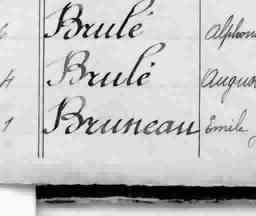 6 Brulé Alphon
4 Brulé Augus
1 Bruneau Emile